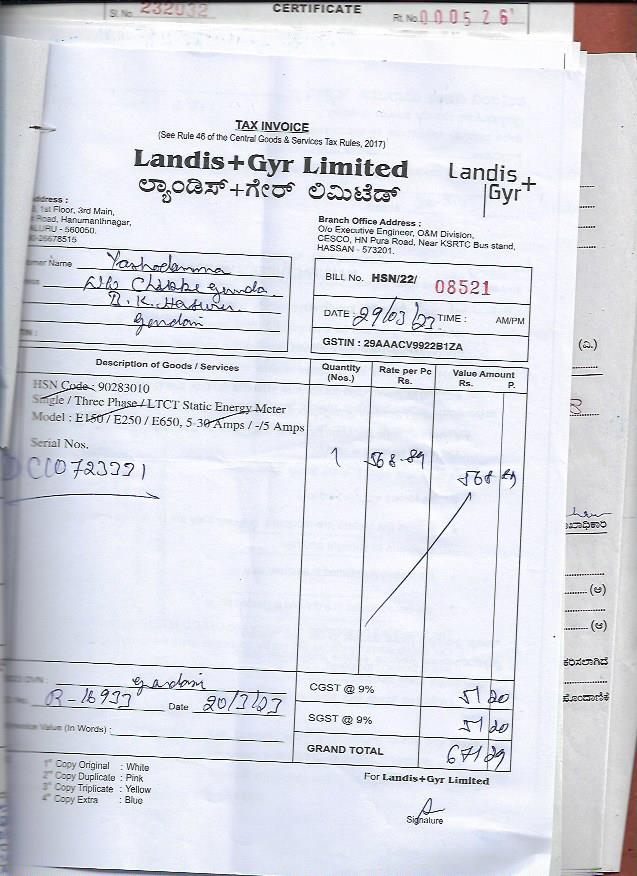 Sl. No. 232032
CERTIFICATE
Rt. No. 000526
TAX INVOICE
(See Rule 46 of the Central Goods & Services Tax Rules, 2017)
Landis+Gyr Limited
ಲ್ಯಾಂಡಿಸ್+ಗೇರ್ ಲಿಮಿಟೆಡ್
Landis+
Gyr
ddress :
1st Floor, 3rd Main,
Road, Hanumanthnagar,
LURU - 560050.
26678515
Branch Office Address :
O/o Executive Engineer, O&M Division,
CESCO, HN Pura Road, Near KSRTC Bus stand,
HASSAN - 573201.
mer Name Yashodamma
Chikke gowda
gandasi
BILL No. HSN/22/ 08521
DATE : 29/03/23 TIME : AM/PM
GSTIN : 29AAACV9922B1ZA
Description of Goods / Services
Quantity (Nos.)
Rate per Pc Rs.
Value Amount Rs. P.
HSN Code : 90283010
Single / Three Phase / LTCT Static Energy Meter
Model : E150 / E250 / E650, 5-30 Amps / -/5 Amps
Serial Nos.
1 568-89 568 89
gandasi
R-16933 Date 20/3/23
Value (In Words) :
CGST @ 9% 51 20
SGST @ 9% 51 20
GRAND TOTAL 671 29
1st Copy Original : White
2nd Copy Duplicate : Pink
3rd Copy Triplicate : Yellow
4th Copy Extra : Blue
For Landis+Gyr Limited
Signature
(ಎ.)
(ಅ)
(ಆ)